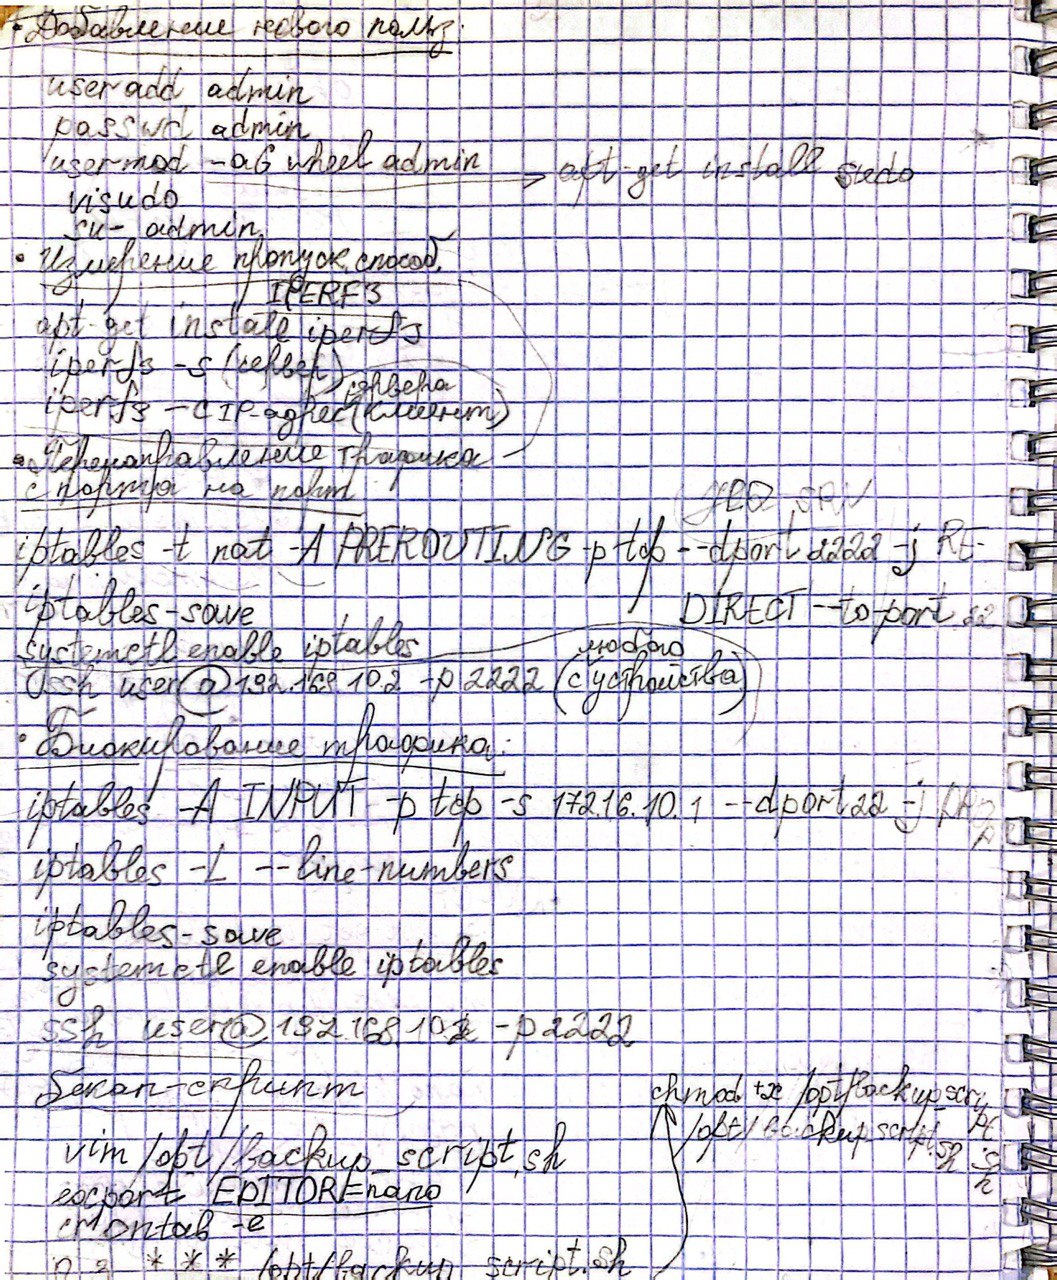 • Добавление нового польз.
useradd admin
passwd admin
usermod -aG wheel admin → apt-get install sudo
visudo
su- admin
• Измерение пропуск. способ.
IPERF3
apt-get install iperf3
iperf3 -s (сервер)
сервера
iperf3 -c IP-адрес (клиент)
• Перенаправление трафика
с порта на порт
HQ SRV
iptables -t nat -A PREROUTING -p tcp --dport 2222 -j RE-
DIRECT --to-port 22
iptables-save
systemctl enable iptables
ssh user@192.168.10.2 -p 2222 (с любого устройства)
• Блокирование трафика:
iptables -A INPUT -p tcp -s 172.16.10.1 --dport 22 -j
iptables -L --line-numbers
iptables-save
systemctl enable iptables
ssh user@192.168.10.2 -p 2222
Бекап-скрипт
chmod +x /opt/backup_script.sh
/opt/backup_script.sh
vim /opt/backup_script.sh
export EDITOR=nano
crontab -e
* * * /opt/backup_script.sh